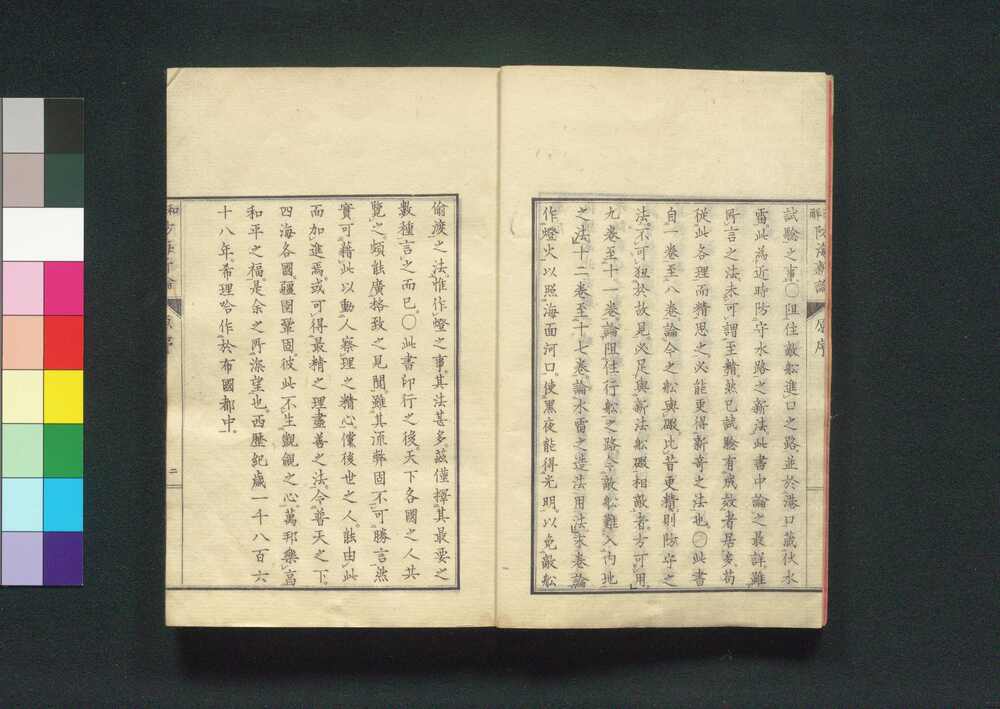 防海新論
原序
試驗之事○阻住敵船進口之路並於港口藏伏水
雷此為近時防守水路之新法此書中論之最詳雖
所言之法未可謂至精然已試驗有成效者居多苟
從此各理而精思之必能更得新奇之法也○此書
自一卷至八卷論今之船與礮比昔更精則防守之
法不可狃於故見必足與新法船礮相敵者方可用
九卷至十一卷論阻住行船之路令敵船難入內地
之法十二卷至十七卷論水雷之造法用法末卷論
作燈火以照海面河口使黑夜能得光明以免敵船
偷渡之法惟作燈之事其法甚多茲僅擇其最要之
數種言之而已○此書印行之後天下各國之人共
覽之頗能廣格致之見聞雖其流弊固不可勝言然
實可藉此以動人察理之精心儻後世之人能由此
而加進焉或可得最精之理盡善之法令普天之下
四海各國疆圉鞏固彼此不生觀覦之心萬邦樂富
和平之福是余之所深望也西歷紀歲一千八百六
十八年希理哈作於布國都中
二